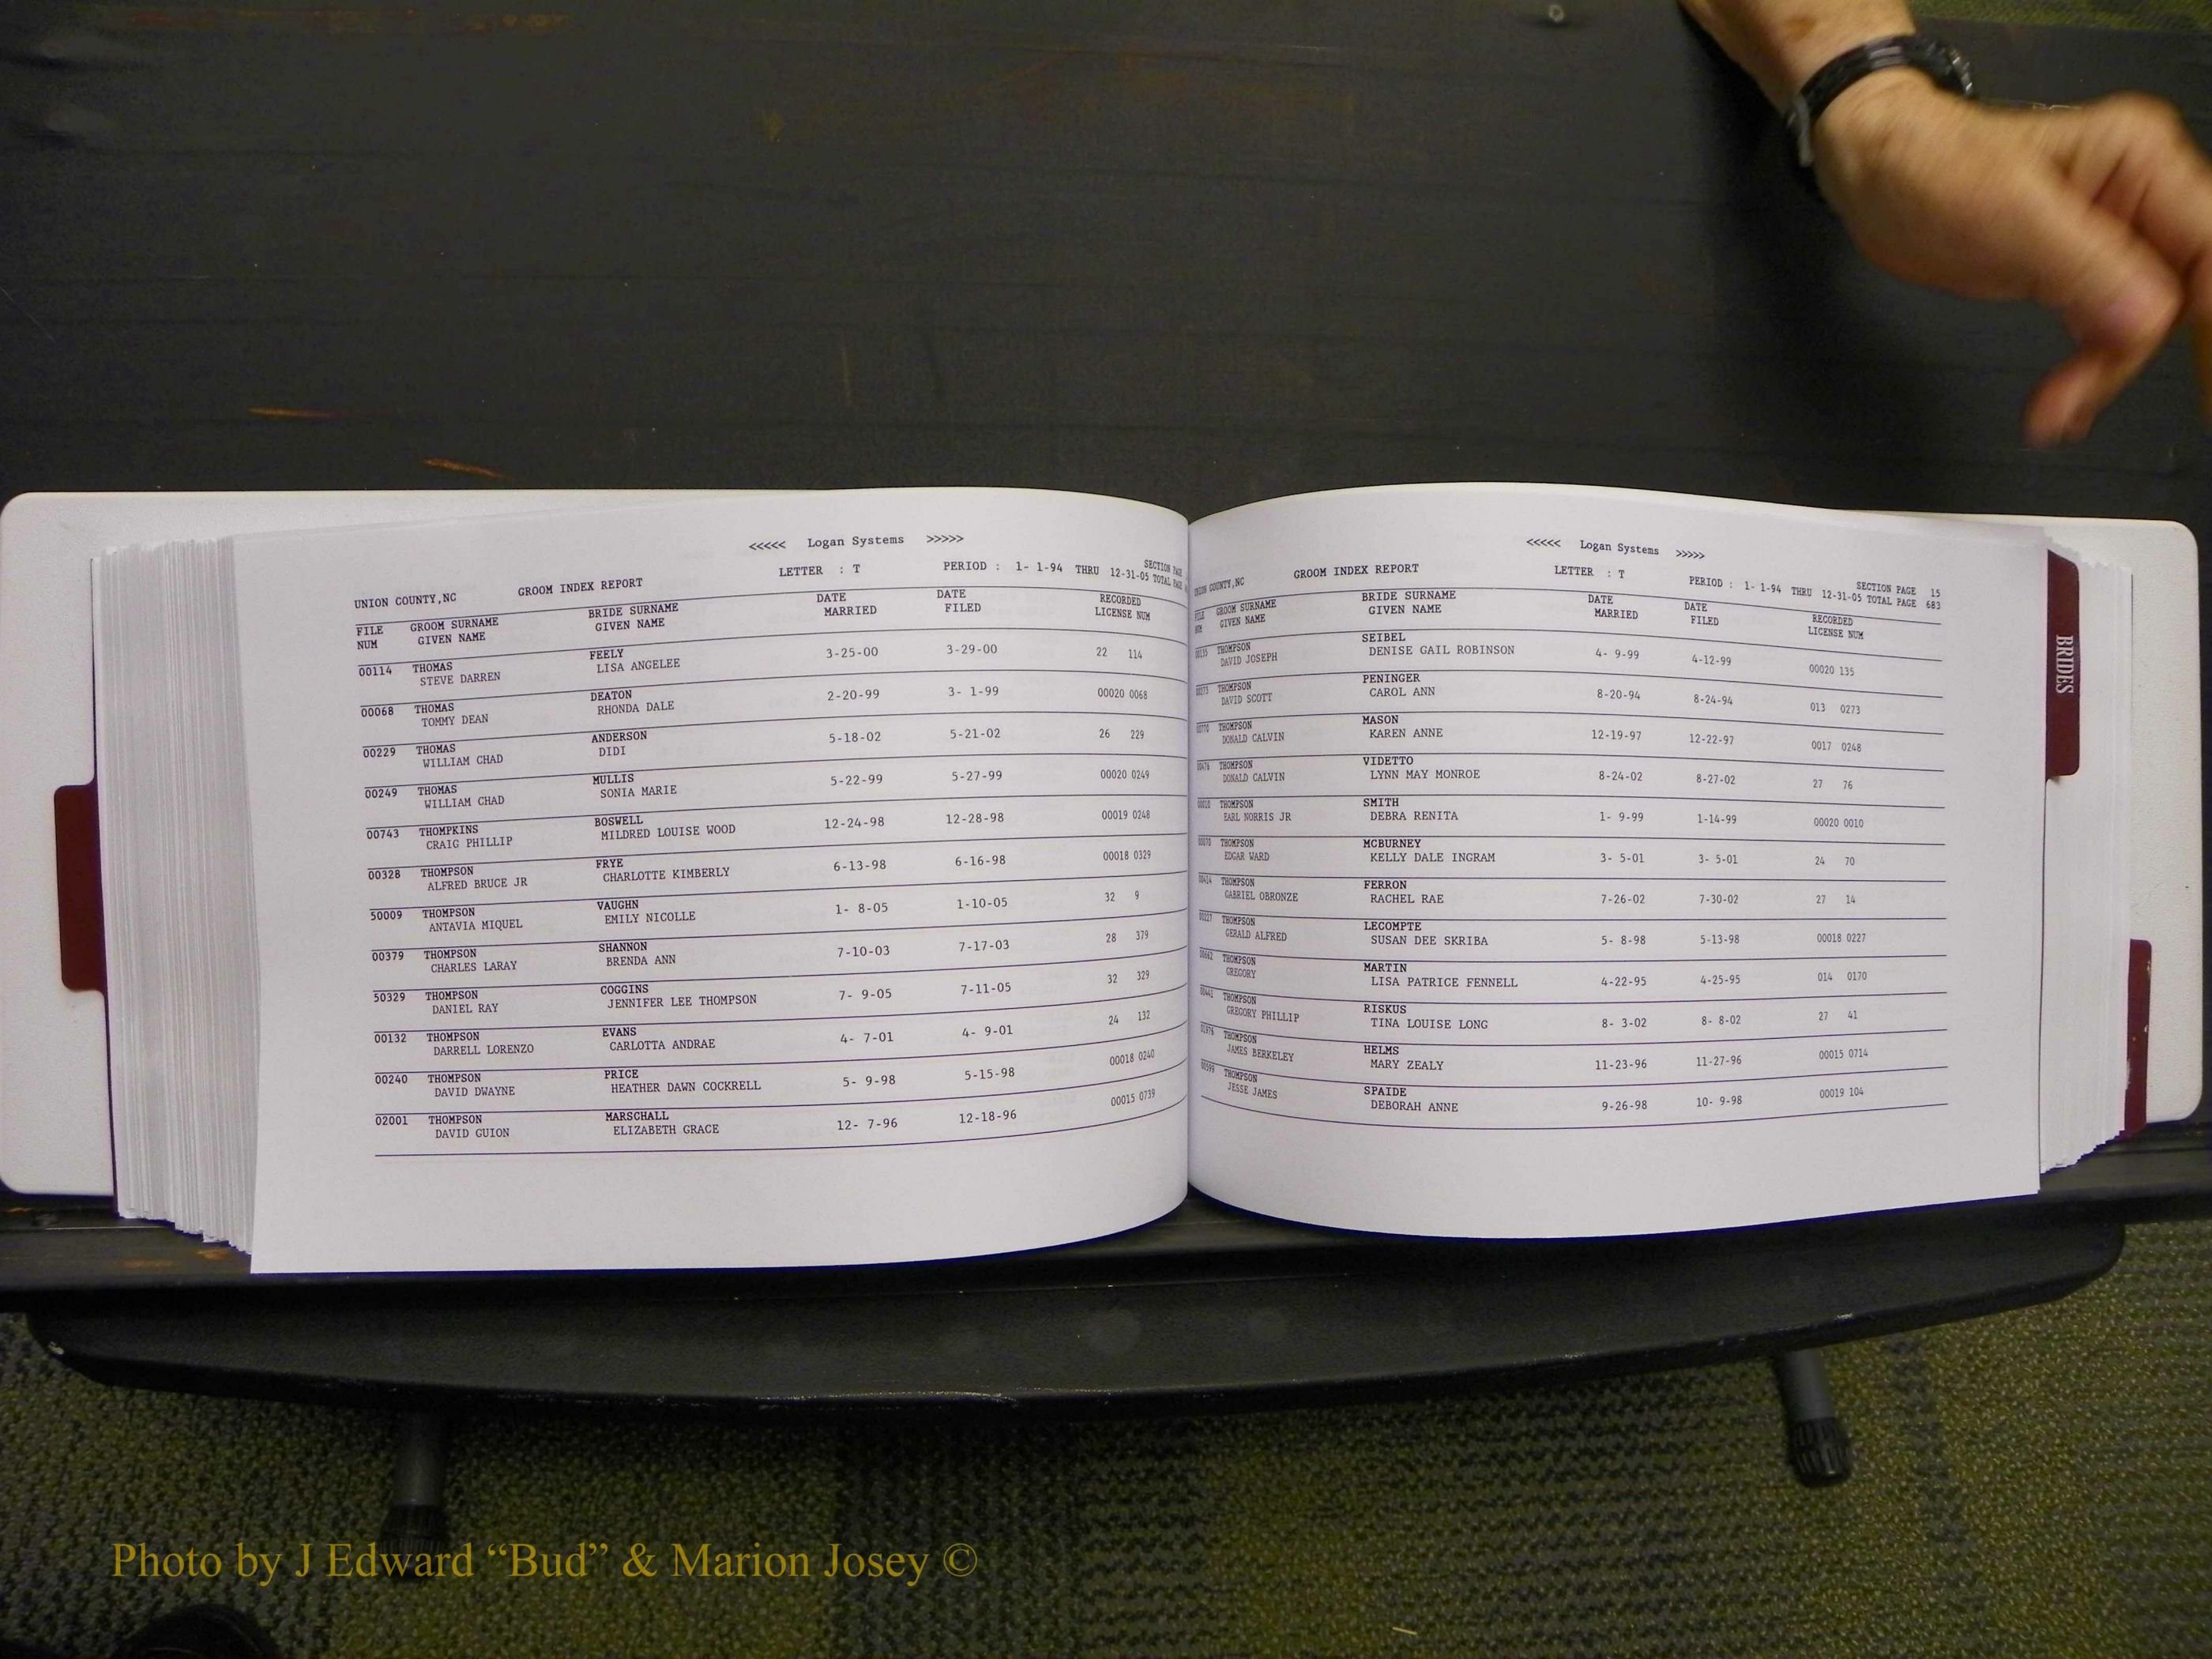 <<<<< Logan Systems >>>>>
UNION COUNTY,NC GROOM INDEX REPORT LETTER : T PERIOD : 1- 1-94 THRU 12-31-05 SECTION PAGE
TOTAL PAGE
FILE GROOM SURNAME BRIDE SURNAME DATE DATE RECORDED
NUM GIVEN NAME GIVEN NAME MARRIED FILED LICENSE NUM
00114 THOMAS FEELY 3-25-00 3-29-00 22 114
STEVE DARREN LISA ANGELEE
00068 THOMAS DEATON 2-20-99 3- 1-99 00020 0068
TOMMY DEAN RHONDA DALE
00229 THOMAS ANDERSON 5-18-02 5-21-02 26 229
WILLIAM CHAD DIDI
00249 THOMAS MULLIS 5-22-99 5-27-99 00020 0249
WILLIAM CHAD SONIA MARIE
00743 THOMPKINS BOSWELL 12-24-98 12-28-98 00019 0248
CRAIG PHILLIP MILDRED LOUISE WOOD
00328 THOMPSON FRYE 6-13-98 6-16-98 00018 0329
ALFRED BRUCE JR CHARLOTTE KIMBERLY
50009 THOMPSON VAUGHN 1- 8-05 1-10-05 32 9
ANTAVIA MIQUEL EMILY NICOLLE
00379 THOMPSON SHANNON 7-10-03 7-17-03 28 379
CHARLES LARAY BRENDA ANN
50329 THOMPSON COGGINS 7- 9-05 7-11-05 32 329
DANIEL RAY JENNIFER LEE THOMPSON
00132 THOMPSON EVANS 4- 7-01 4- 9-01 24 132
DARRELL LORENZO CARLOTTA ANDRAE
00240 THOMPSON PRICE 5- 9-98 5-15-98 00018 0240
DAVID DWAYNE HEATHER DAWN COCKRELL
02001 THOMPSON MARSCHALL 12- 7-96 12-18-96 00015 0739
DAVID GUION ELIZABETH GRACE
<<<<< Logan Systems >>>>>
UNION COUNTY,NC GROOM INDEX REPORT LETTER : T PERIOD : 1- 1-94 THRU 12-31-05 SECTION PAGE 15
TOTAL PAGE 683
FILE GROOM SURNAME BRIDE SURNAME DATE DATE RECORDED
NUM GIVEN NAME GIVEN NAME MARRIED FILED LICENSE NUM
00135 THOMPSON SEIBEL 4- 9-99 4-12-99 00020 135
DAVID JOSEPH DENISE GAIL ROBINSON
THOMPSON PENINGER 8-20-94 8-24-94 013 0273
DAVID SCOTT CAROL ANN
THOMPSON MASON 12-19-97 12-22-97 0017 0248
DONALD CALVIN KAREN ANNE
THOMPSON VIDETTO 8-24-02 8-27-02 27 76
DONALD CALVIN LYNN MAY MONROE
00010 THOMPSON SMITH 1- 9-99 1-14-99 00020 0010
EARL NORRIS JR DEBRA RENITA
00070 THOMPSON MCBURNEY 3- 5-01 3- 5-01 24 70
EDGAR WARD KELLY DALE INGRAM
00414 THOMPSON FERRON 7-26-02 7-30-02 27 14
GABRIEL OBRONZE RACHEL RAE
00227 THOMPSON LECOMPTE 5- 8-98 5-13-98 00018 0227
GERALD ALFRED SUSAN DEE SKRIBA
THOMPSON MARTIN 4-22-95 4-25-95 014 0170
GREGORY LISA PATRICE FENNELL
00441 THOMPSON RISKUS 8- 3-02 8- 8-02 27 41
GREGORY PHILLIP TINA LOUISE LONG
01976 THOMPSON HELMS 11-23-96 11-27-96 00015 0714
JAMES BERKELEY MARY ZEALY
00599 THOMPSON SPAIDE 9-26-98 10- 9-98 00019 104
JESSE JAMES DEBORAH ANNE
BRIDES
Photo by J Edward “Bud” & Marion Josey ©